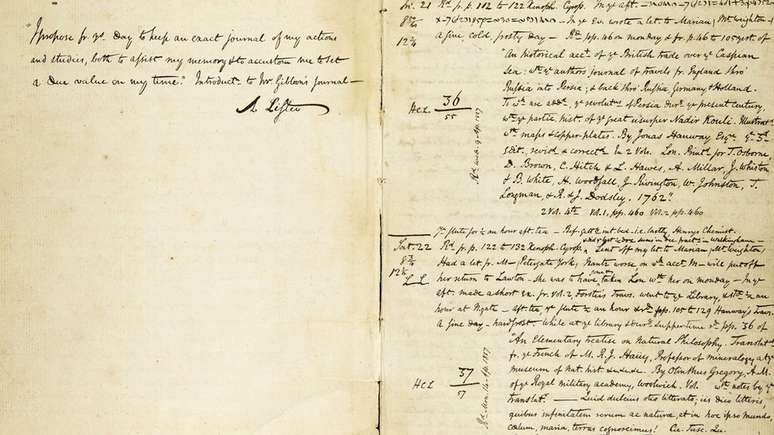 "I propose fr. ys. day to keep an exact journal of my actions
and studies, both to assist my memory & to accustom me to set
a due value on my time." Introduct. to Mr. Gibbon's journal —
A Lister
21 Rd. fr. p. 102 to 122 Xenoph. Cyrop. In ye aft.
8 3/4 In ye Ev. wrote a let. to Marian, Mrs. Wrighton
12 1/4 a fine, cold, frosty day — Rd. pp. 46 on monday & fr. p. 46 to 105 of
"An historical acct. of ye British trade over ye Caspian
Sea: wth. ye authors journal of travels fr. England thro'
Russia into Persia; & back thro' Russia, Germany & Holland.
To wh. are add. ye revolutns. of Persia dur. ye present century,
wth. ye partic. hist. of ye great usurper Nadir Kouli. Illustrated
wth. maps & copper-plates. By Jonas Hanway Esqr. ye 3d.
edit. revis'd & correct'd. In 2 Vols. Lon. Print. for T. Osborne
D. Brown, C. Hitch & L. Hawes, A. Millar, J. Whiston
& B. White, H. Woodfall, J. Rivington, W. Johnston, T.
Longman, & R. & J. Dodsley. 1762."
2 Vol. 4to. Vol. 1. pp. 460 Vol. 2 pp. 460
HCL 36
55
flute for 1/2 an hour aft. tea
22 Rd. fr. p. 122 to 132 Xenoph. Cyrop. Sent off my let. to Marian (Mrs. Wrighton)
8 3/4 Had a let. fr. M— Petergate York, worse on wh. acct. M— will put off
12 1/4 her return to Lawton. She was to have taken Lou wth. her on monday — In ye
L L aft. made a short ex. fr. vol. 2, Forster's Travs. went to ye Library, & 1/2 an
hour at Ngate — aft. tea, ye flute 1/2 an hour & rd. pp. 105 to 129 Hanway's Travs.
a fine day — hard frost. While at ye library & dur. supper time rd. pp. 36 of
"An Elementary treatise on Natural Philosophy. Translatd.
fr. ye French of M. R. J. Haüy, Professor of mineralogy at ye
museum of nat. hist. &c &c &c. By Olinthus Gregory, A.M.
of ye Royal military academy, Woolwich. Vol. wth. notes by ye
translatr. — Quid dulcius otio litterato, iis dico litteris,
quibus infinitatem rerum ac naturæ, et in hoc ipso mundo,
cœlum, maria, terras cognoscimus! Cic. Tusc. Qu.
HCL 37
7